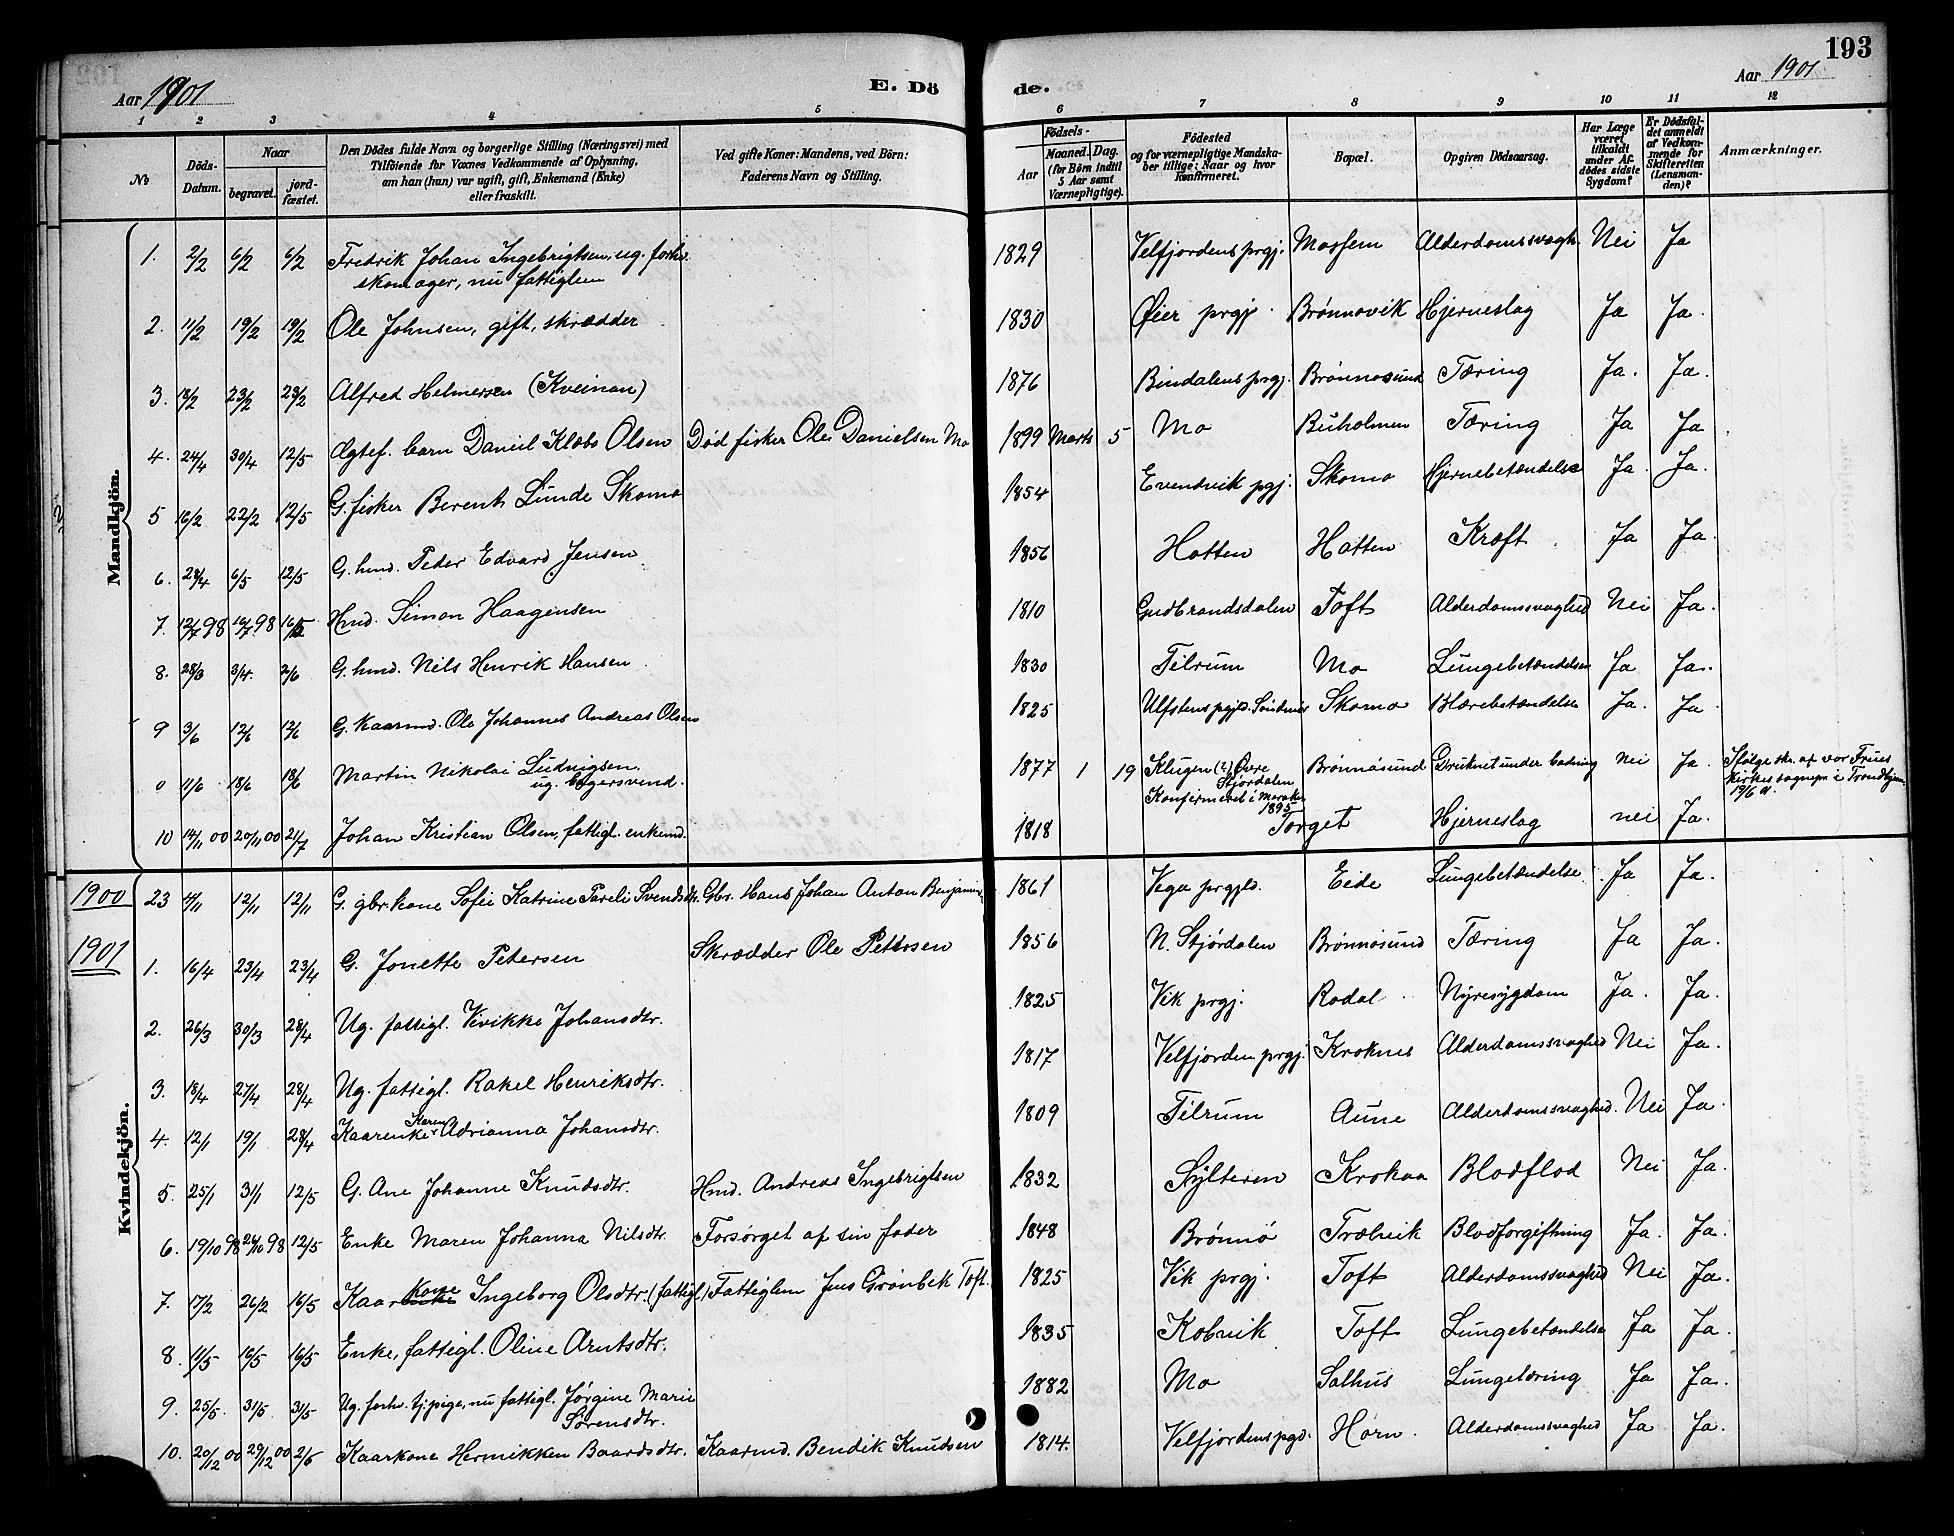 193
Aar 1901
E. Dö
de.
Aar 1901
1 2 3 4 5 6 7 8 9 10 11 12
№
Döds-Datum.
Naar
begravet.
jord-fæstet.
Den Dödes fulde Navn og borgerlige Stilling (Næringsvei) med
Tilföiende for Voxnes Vedkommende af Oplysning,
om han (hun) var ugift, gift, Enkemand (Enke)
eller fraskilt.
Ved gifte Koner: Mandens, ved Börn:
Faderens Navn og Stilling.
Födsels-
Aar
Maaned. Dag.
(for Börn indtil
5 Aar samt
Værnepligtige).
Födested
og for værnepligtige Mandska-
ber tillige: Naar og hvor
konfirmeret.
Bopæl.
Opgiven Dödsaarsag.
Har Læge
været
tilkaldt
under Af-
dödes sidste
Sygdom?
Er Dödsfal-
det anmeldt
af Vedkom-
mende for
Skifteretten
(Lensman-
den)?
Anmærkninger.
Mandkjön.
1. 2/2 6/2 6/2 Fredrik Johan Ingebrigtsen, ug. forhv. 1829 Velfjordens prgj. Mosheim Alderdomssvagh. Nei Ja
skomager, nu fattiglem
2. 11/2 19/2 19/2 Ole Johnsen, gift, skrædder 1830 Øier prgj. Brønnøvik Hjerneslag Ja Ja.
3. 18/2 23/2 23/2 Alfred Helmersen (Kveinan) 1876 Bindalens prgj. Brønnøsund Tæring Ja. Ja.
4. 24/4 30/4 12/5 Ægtef. barn Daniel Klæbo Olsen Død fisker Ole Danielsen Mo 1899 Marts 5 Mo Buholmen Tæring Ja Ja
5 16/2 22/2 12/5 G. fisker Berent Lunde Skomo 1854 Evendvik pgj. Skomo Hjernebetændelse Ja. Ja.
6. 28/4 6/5 12/5 G. hmd. Peder Edvard Jensen 1856 Hatten Hatten Kræft Ja Ja.
7. 12/7 98 16/7 98 16/5 Hmd. Simon Haagensen 1810 Gudbrandsdalen Toft Alderdomssvaghed Nei Ja.
8. 28/3 3/4. 2/6 G. hmd. Nils Henrik Hansen 1830 Tilrum Mo Lungebetændelse Ja Ja.
9 3/6 12/6 12/6 G. kaarmd. Ole Johannes Andreas Olsen 1825 Ulfstens pgjld. Søndmør Skomo Blærebetændelse Ja. Ja
0 11/6 18/6 18/6 Martin Nikolai Ludvigsen 1877 1 19 Klugen (?) Øvre Brønnøsund Druknet under badning Nei Ja. Ifølge skr. af vor Frues
ug. bagersvend. Stjørdalen kirkes sognepr. i Trondhjem
Konfirmeret i Meraker 19/6 d.
1895
10 14/11 00 20/11 00 21/7 Johan Kristian Olsen, fattigl. enkemd. 1818 Torget Hjerneslag nei Ja.
Kvindekjön.
1900 23 4/11 12/11 12/11 G. gbr.kone Sofie Katrine Pareli Svendsdtr. Gbr. Hans Johan Anton Benjamins. 1861 Vega prgjld. Eide Lungebetændelse Ja Ja.
1901 1. 16/4 23/4 23/4 G. Jonette Petersen Skrædder Ole Pettersen 1856 N. Stjórdalen Brønnøsund Tæring Ja Ja.
2. 26/3 30/3 28/4 Ug. fattigl. Vivikke Johansdtr. 1825 Vik prgj. Rodal Nyresygdom Ja. Ja.
3. 18/4 27/4 28/4 Ug. fattigl. Rakel Henriksdtr. 1817 Velfjorden prgj. Kroknes Alderdomssvaghed Nei Ja.
Karen
4. 12/1 19/1 28/4 Kaarenke Adrianna Johansdtr. 1809 Tilrum Aune Alderdomssvaghed. Nei Ja.
5. 25/1 31/1 12/5 G. Ane Johanne Knudsdtr. Hmd. Andreas Ingebrigtsen 1832 Sylteren Krokaa Blodflod Nei Ja.
6. 19/10 98 24/10 98 12/5 Enke Maren Johanna Nilsdtr. Forsørget af sin fader 1848 Brönnö Trælvik Blodforgiftning Ja. Ja.
kone
7. 17/2 26/2 16/5 Kaarenke Ingeborg Olsdtr. (fattigl.) Fattiglem Jens Grønbek Toft. 1825 Vik prgj. Toft Alderdomssvaghed Nei Ja.
8. 11/5 16/5 16/5 Enke, fattigl. Oline Arntsdtr. 1835 Kobvik Toft Lungebetændelse Ja Ja.
9. 25/5. 31/5 31/5 Ug. forhv. tj.pige, nu fattigl. Jørgine Marie 1882 Mo Salhus Lungetæring Ja Ja.
Sørensdtr.
10. 20/12 00 29/12 00 2/6 Kaarkone Hermikken Baardsdtr. Kaarmd. Bendik Knudsen 1814. Velfjordens pgd. Horn. Alderdomssvaghed Ja Ja.